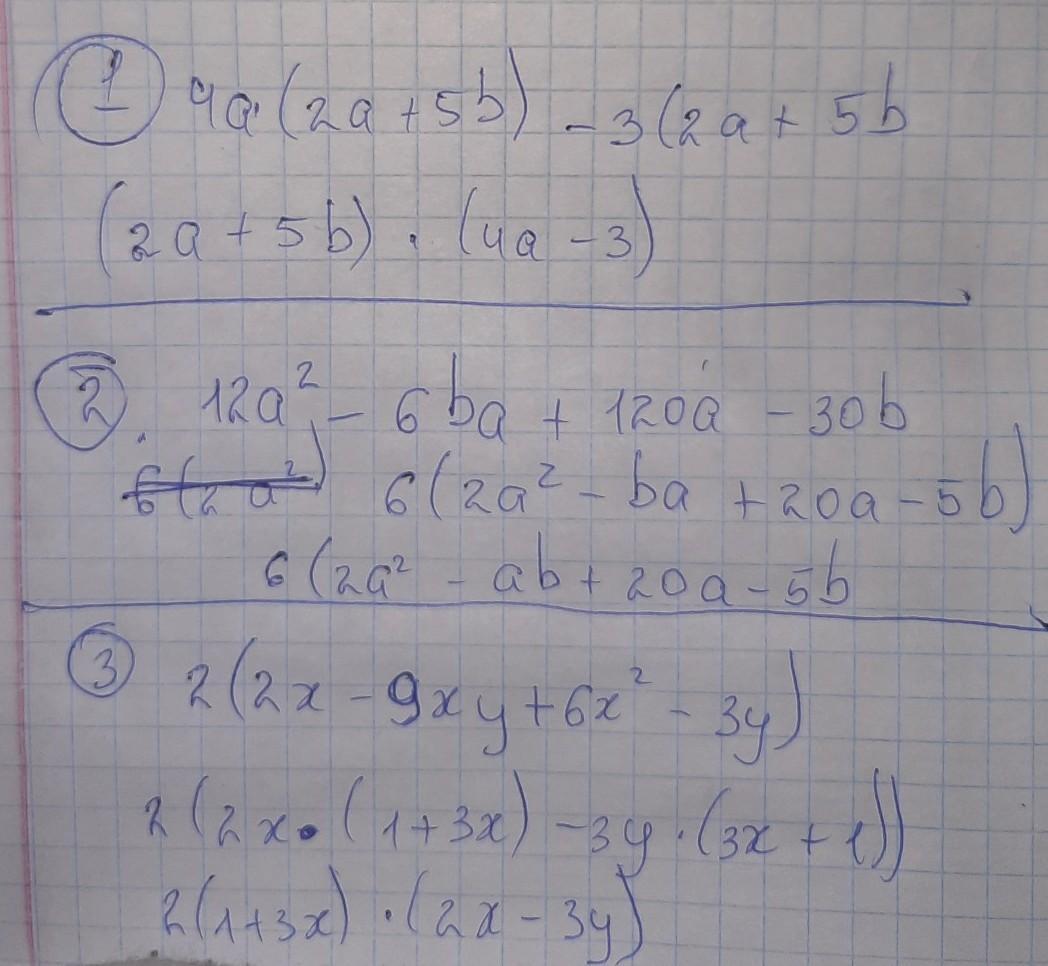 1 4a (2a + 5b) - 3(2a + 5b
(2a + 5b) · (4a - 3)
2. 12a² - 6ba + 120a - 30b
6(2a²) 6(2a² - ba + 20a - 5b)
6(2a² - ab + 20a - 5b
3 2(2x - 9xy + 6x² - 3y)
2(2x · (1+3x) - 3y · (3x + 1))
2(1+3x) · (2x - 3y)